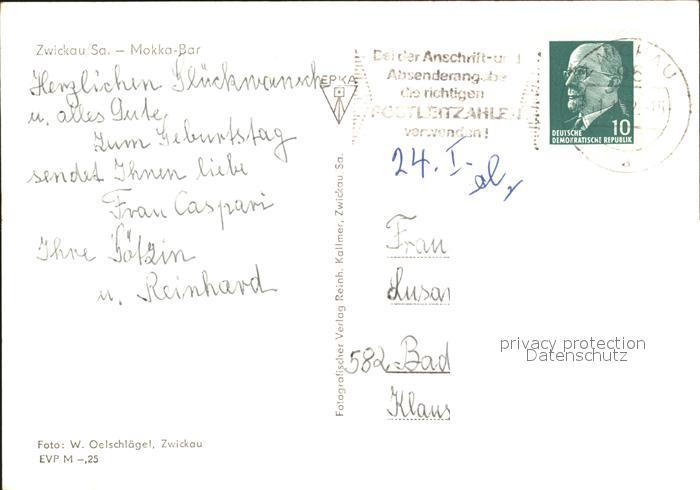 Zwickau/Sa. – Mokka-Bar
Herzlichen Glückwunsch
u. alles Gute
zum Geburtstag
sendet Ihnen liebe
Frau Caspari
Ihre
u. Reinhard
Foto: W. Oelschlägel, Zwickau
EVP M –,25
Fotografischer Verlag Reinh. Kallmer, Zwickau Sa.
Bei der Anschrift- und
Absenderangabe
die richtigen
POSTLEITZAHLEN
verwenden!
DEUTSCHE
DEMOKRATISCHE REPUBLIK
10
24. I.
Frau
Susan
582 Bad
Klaus
privacy protection
Datenschutz